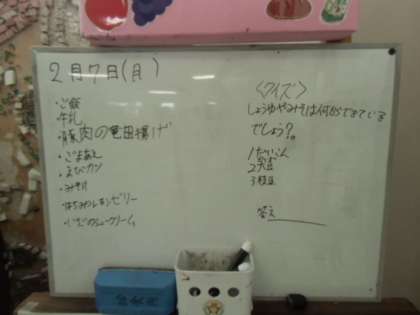 2月7日(月)
・ご飯
・牛乳
・豚肉の竜田揚げ
・ごまあえ
・みそ汁
・はちみつレモンゼリー
・いちごのシュークリーム
〈クイズ〉
しょうゆやみそは何ができている
でしょう?。
1だいこん
2大豆
3枝豆
答え